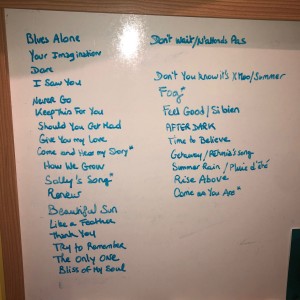 Blues Alone
Your Imagination
Dare
I Saw You
Never Go
Keep this For You
Should You Get Mad
Give You my Love
Come and Hear my Story*
How We Grow
Solly's Song*
Renew
Beautiful Sun
Like a Feather
Thank You
Try to Remember
The Only One
Bliss of My Soul
Don't Wait/N'attends Pas
Don't You know it's Xmas/Summer
Fog*
Feel Good / Si bien
AFTER DARK
Time to Believe
Getaway / 's song
Summer Rain / Pluie d'été
Rise Above
Come as You Are*